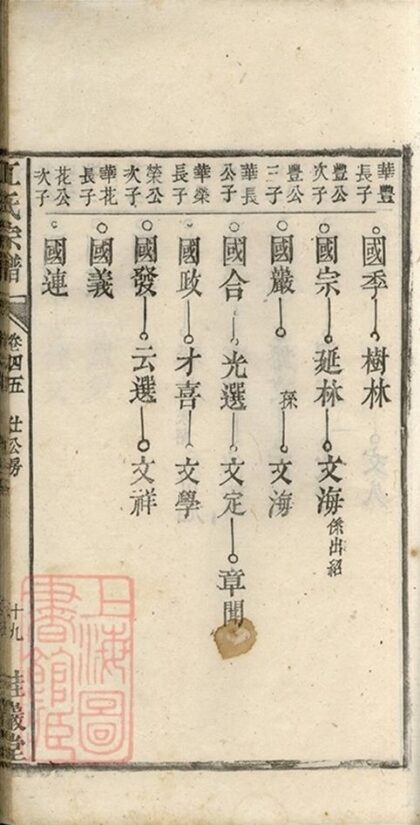 華豐長子 國季 樹林
豐公次子 國宗 延林 文海 係出紹
豐公三子 國嚴 孫 文海
華長公子 國合 光選 文定 章聞
華榮長子 國政 才喜 文學
榮公次子 國發 云選 文祥
華花長子 國義
花公次子 國連
氏宗譜 卷四五 仕公房 十九 巖堂
上海圖書館藏